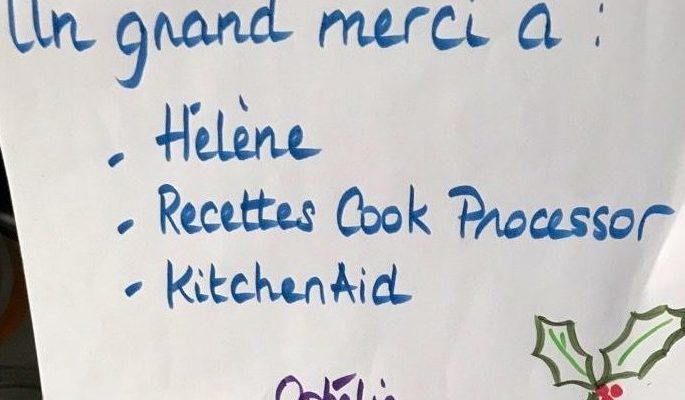 Un grand merci a :
- Hélène
- Recettes Cook Processor
- KitchenAid